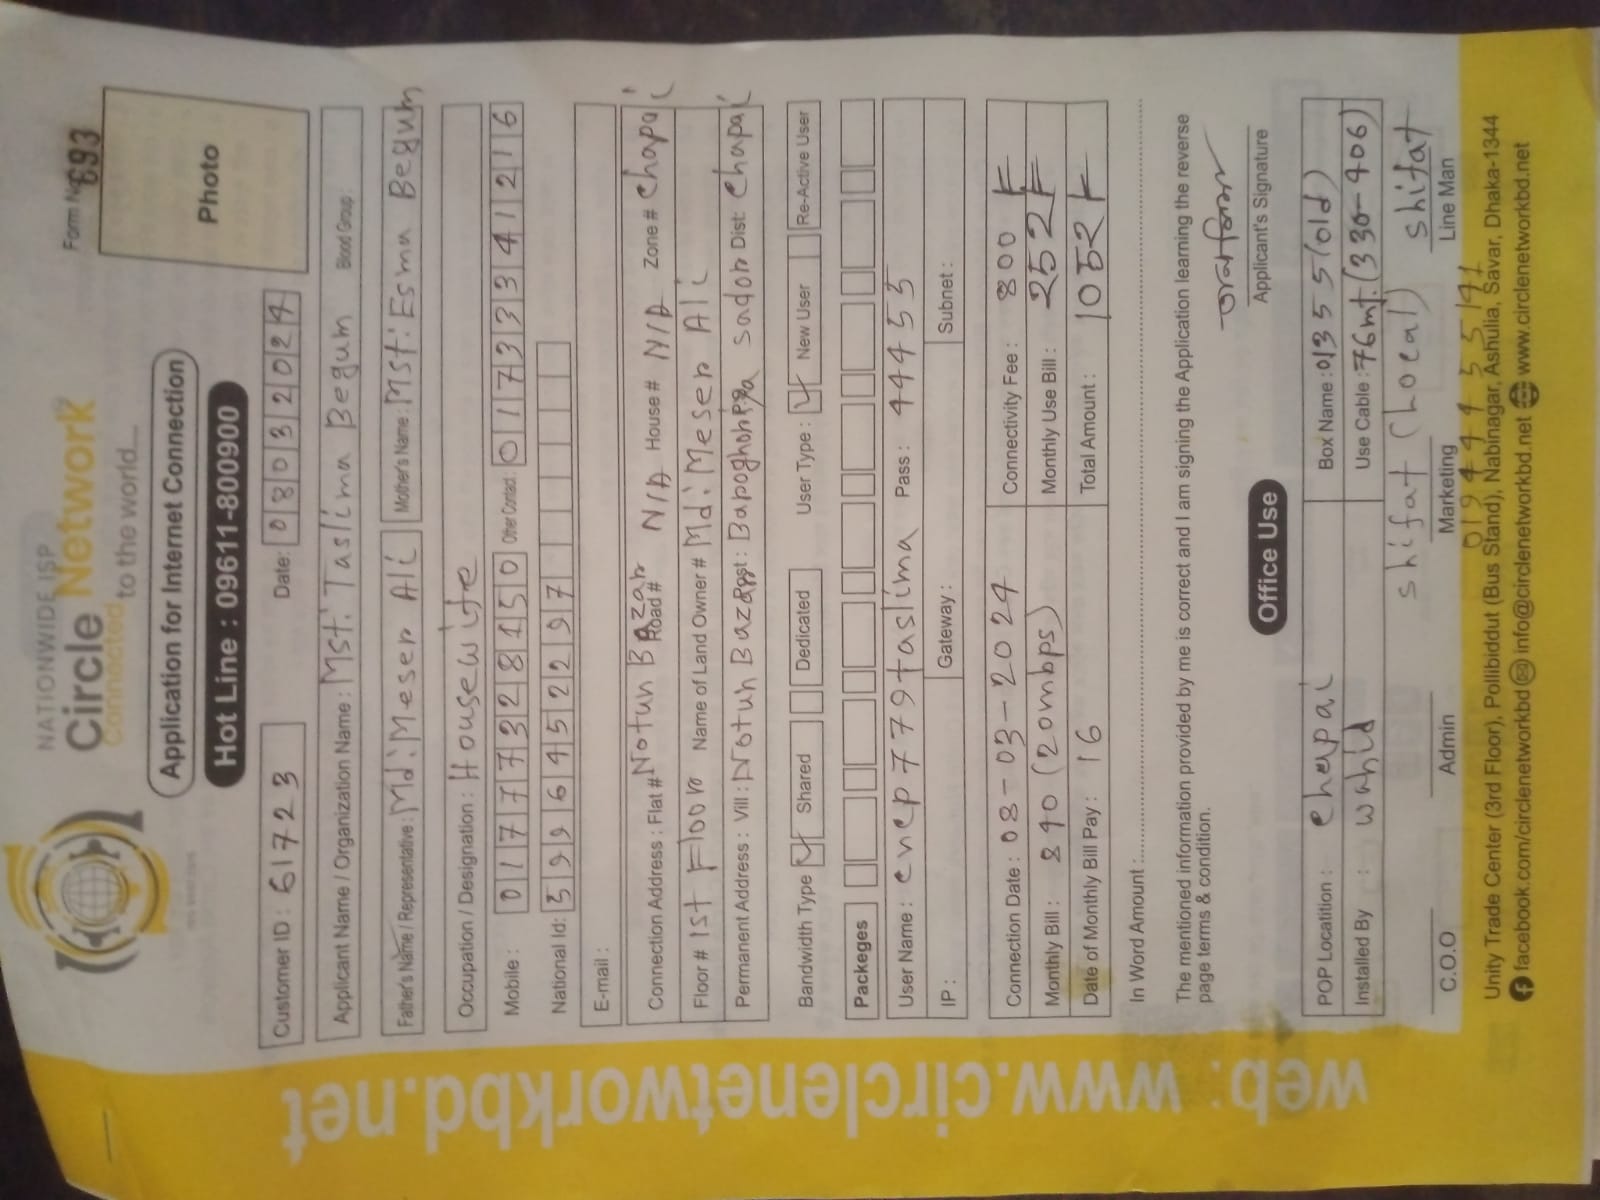 Form No. 693
NATIONWIDE ISP
Circle Network
Connected to the world....
Photo
Application for Internet Connection
Hot Line : 09611-800900
Customer ID : 61723 Date: 08032024
Applicant Name / Organization Name : Mst: Taslima Begum Blood Group :
Father's Name / Representative : Md: Meser Ali Mother's Name : Mst: Esma Begum
Occupation / Designation : Housewife
Mobile : 01777328150 Other Contact : 01733341216
National Id: 5996452297
E-mail :
Connection Address : Flat # Notun Bazar Road # N/A House # N/A Zone # Chapai
Floor # 1st Floor Name of Land Owner # Md: Meser Ali
Permanent Address : Vill : Notun Bazar Post : Baroghoria sador Dist: Chapai
Bandwidth Type Shared Dedicated User Type : New User Re-Active User
Packeges
User Name : cncp779taslima Pass : 44455
IP : Gateway : Subnet :
Connection Date : 08-03-2024 Connectivity Fee : 800
Monthly Bill : 840 (20mbps) Monthly Use Bill : 252
Date of Monthly Bill Pay : 16 Total Amount : 1052
In Word Amount :
The mentioned information provided by me is correct and I am signing the Application learning the reverse
page terms & condition.
Applicant's Signature
Office Use
POP Locatition : Chapai Box Name : 01355 (old)
Installed By : wahid Use Cable : 76mt: (330-406)
shifat (Local) shifat
C.O.O Admin Marketing Line Man
Unity Trade Center (3rd Floor), Pollibiddut (Bus Stand), Nabinagar, Ashulia, Savar, Dhaka-1344
facebook.com/circlenetworkbd info@circlenetworkbd.net www.circlenetworkbd.net
web: www.circlenetworkbd.net